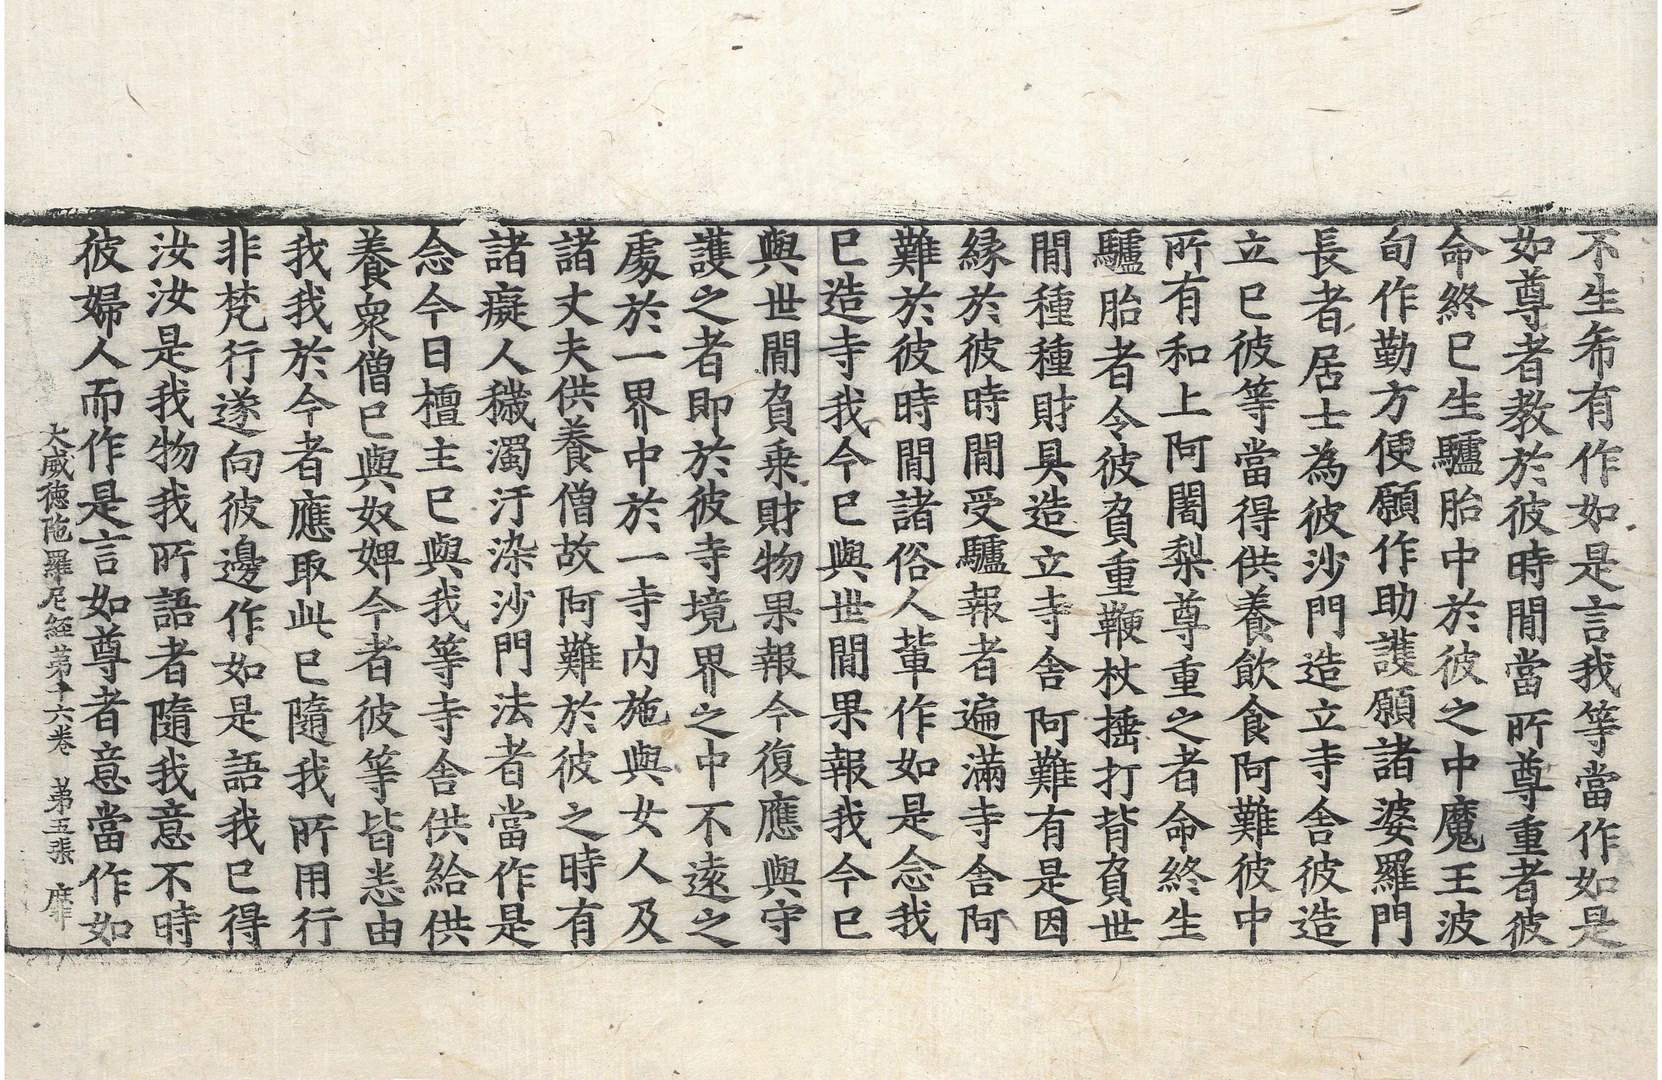 不生希有作如是言我等當作如是
如尊者教於彼時閒當所尊重者彼
命終已生驢胎中於彼之中魔王波
旬作勤方便願作助護願諸婆羅門
長者居士為彼沙門造立寺舍彼造
立已彼等當得供養飲食阿難彼中
所有和上阿闍梨尊重之者命終生
驢胎者令彼負重鞭杖捶打背負世
閒種種財具造立寺舍阿難有是因
緣於彼時閒受驢報者遍滿寺舍阿
難於彼時閒諸俗人輩作如是念我
已造寺我今已與世閒果報我今已
與世閒負乗財物果報今復應與守
護之者即於彼寺境界之中不遠之
處於一界中於一寺內施與女人及
諸丈夫供養僧故阿難於彼之時有
諸癡人穢濁汙染沙門法者當作是
念今日檀主已與我等寺舍供給供
養衆僧已與奴婢今者彼等皆悉由
我我於今者應取此已隨我所用行
非梵行遂向彼邊作如是語我已得
汝汝是我物我所語者隨我意不時
彼婦人而作是言如尊者意當作如
大威德陁羅尼經第十六卷　第五張　靡